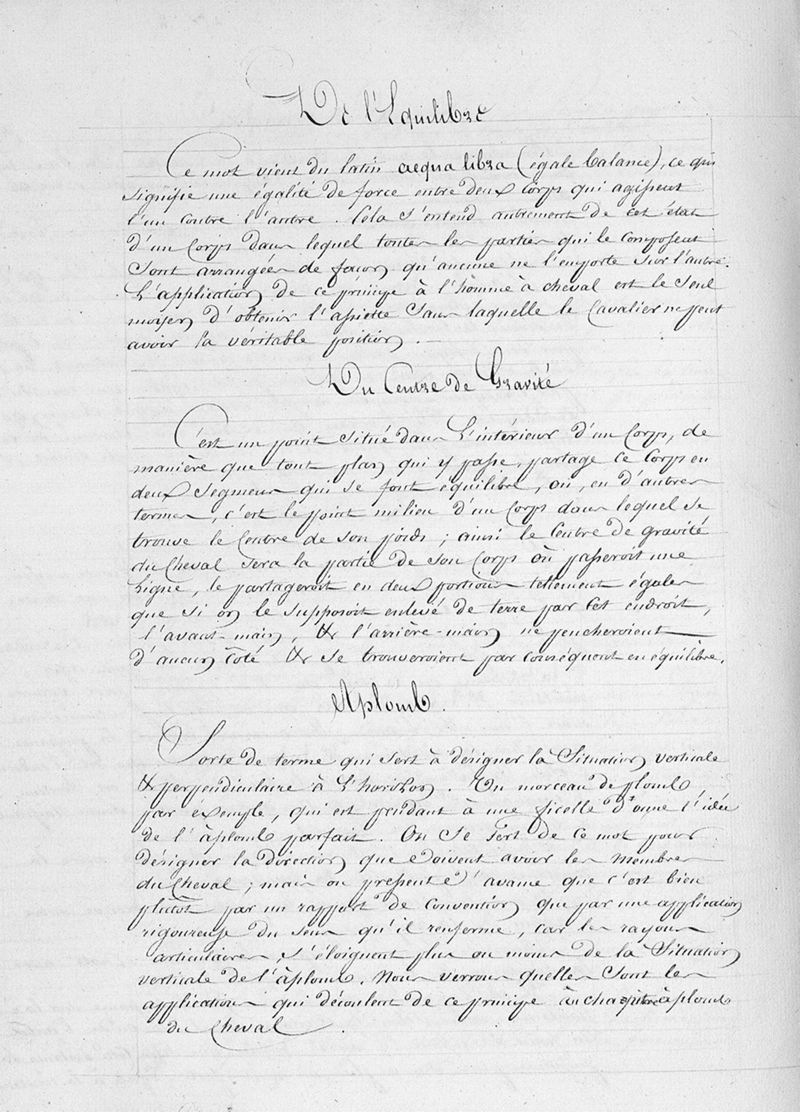 De l'Equilibre
Ce mot vient du latin aequa libra (égale balance), ce qui
signifie une égalité de force entre deux Corps qui agissent
l'un contre l'autre. Cela s'entend autrement de cet état
d'un Corps dans lequel toutes les parties qui le composent
sont arrangées de façon qu'aucune ne l'emporte sur l'autre.
L'application de ce principe à l'homme à cheval est le seul
moyen d'obtenir l'assiette sans laquelle le Cavalier ne peut
avoir la veritable position.
Du Centre de Gravité
C'est un point situé dans l'intérieur d'un Corps, de
manière que tout plan qui y passe, partage ce Corps en
deux segmens qui se font équilibre, ou, en d'autres
termes, c'est le point milieu d'un Corps dans lequel se
trouve le Centre de son poids ; ainsi le Centre de gravité
du Cheval sera la partie de son Corps où passeroit une
ligne, le partageroit en deux portions tellement égales
que si on le supposoit enlevé de terre par cet endroit,
l'avant-main, & l'arrière-main ne pencheroient
d'aucun côté & se trouveroient par conséquent en équilibre.
Aplomb.
Sorte de terme qui sert à désigner la Situation verticale
& perpendiculaire à l'horizon. Un morceau de plomb,
par éxemple, qui est pendant à une ficelle donne l'idée
de l'àplomb parfait. On se sert de ce mot pour
désigner la direction que doivent avoir les membres
du Cheval ; mais on pressent d'avance que c'est bien
plutôt par un rapport de Convention que par une application
rigoureuse du sens qu'il renferme, car les rayons
articulaires, s'éloignent plus ou moins de la Situation
verticale de l'àplomb. Nous verrons quelles sont les
applications qui découlent de ce principe au chapitre àplomb
du Cheval.